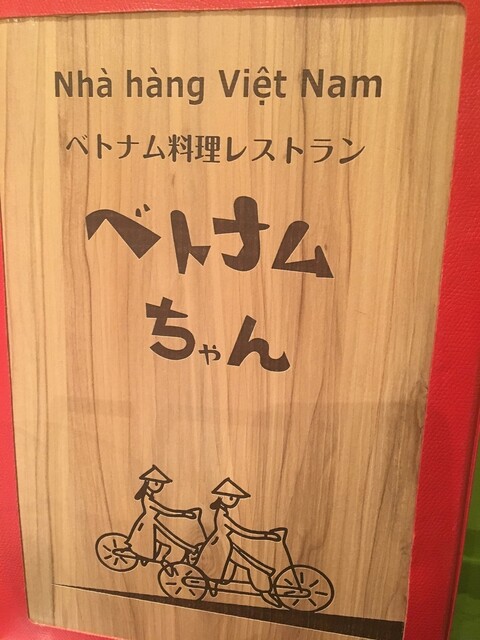 Nhà hàng Việt Nam
ベトナム料理レストラン
ベトナム
ちゃん